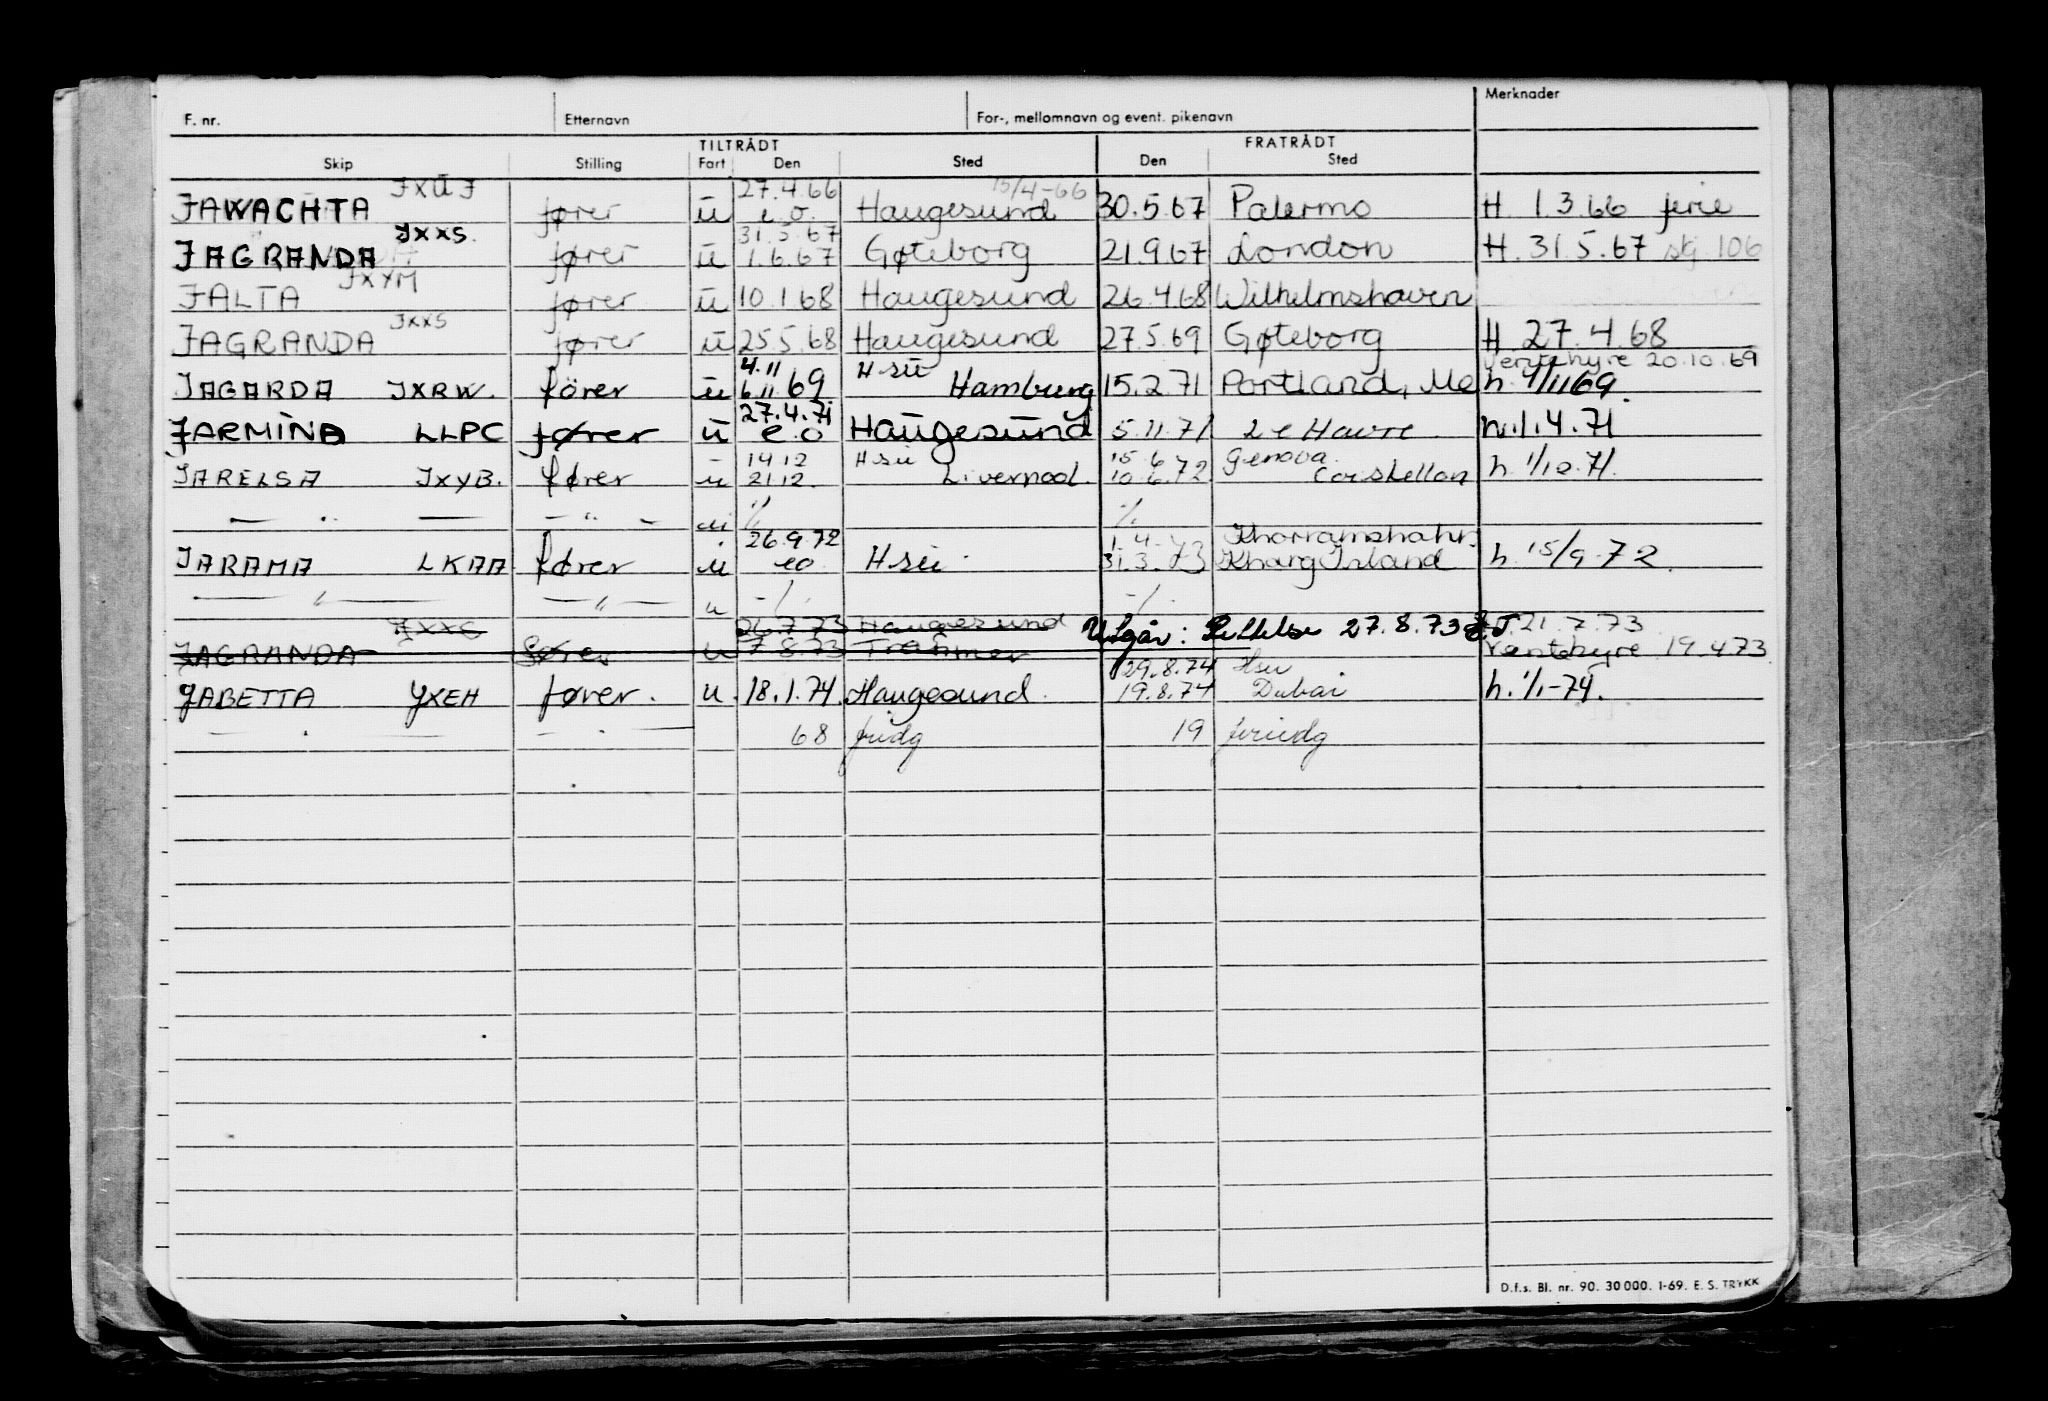 F. nr. Etternavn For-, mellomnavn og event. pikenavn Merknader
TILTRÅDT FRATRÅDT
Skip Stilling Fart Den Sted Den Sted
JXUJ 27.4.66 15/4-66
JAWACHTA fører u e.o. Haugesund 30.5.67 Palermo H 1.3.66 ferie
JXXS. 31.5.67
JAGRANDA fører u 1.6.67 Gøteborg 21.9.67 London H. 31.5.67 skj. 106
JXYM
JALTA fører u 10.1.68 Haugesund 26.4.68 Wilhelmshaven
JXXS
JAGRANDA fører u 25.5.68 Haugesund 27.5.69 Gøteborg H 27.4.68
4.11 Hsu Ventehyre 20.10.69
JAGARDA JXRW. fører u 6.11.69 Hamburg 15.2.71 Portland, Me h. 4/11 69.
27.4.71
JARMINA LLPC fører u e.o Haugesund 5.11.71 Le Havre h. 1.4.71
14.12 Hsu 15.6 Genova
JARELSA JXYB. fører u 21.12. Liverpool. 10.6.72 h. 1/10.71.
— " — — " — u -/. -/.
26.9.72 1.4.73 Khorramshahr.
JARAMA LKAA fører u eo Hsu. 31.3.73 Kharg Island h. 15/9-72.
— " — — " — u -/. -/.
26.7.73 Haugesund Utgår: 27.8.73 21.7.73
JAGRANDA fører u 7.8.73 Ventehyre 19.4.73
29.8.74 Hsu
JABETTA JXEH fører. u. 18.1.74. Haugesund. 19.8.74 Dubai h. 1/1-74.
— . — — . — 68 fridg 19 feriedg
D.f.s. Bl. nr. 90. 30 000. 1-69. E. S. TRYKK